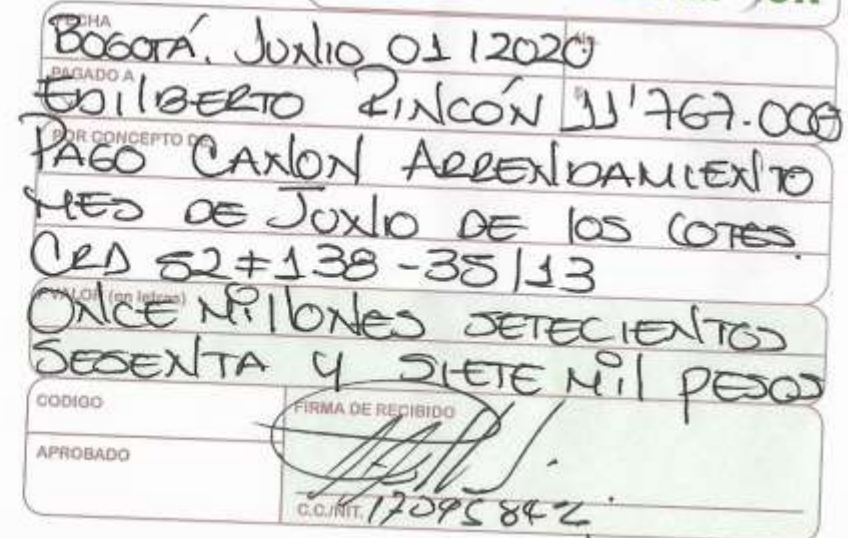 FECHA
BOGOTÁ. JUNIO 01 / 2020
PAGADO A
EDILBERTO RINCÓN $ 11'767.000
POR CONCEPTO DE
PAGO CANON ARRENDAMIENTO
MES DE JUNIO DE LOS LOTES.
CRA 52 # 138 - 35 / 13
VALOR (en letras)
ONCE MILLONES SETECIENTOS
SESENTA Y SIETE MIL PESOS
CODIGO
FIRMA DE RECIBIDO
APROBADO
C.C./NIT. 17095842